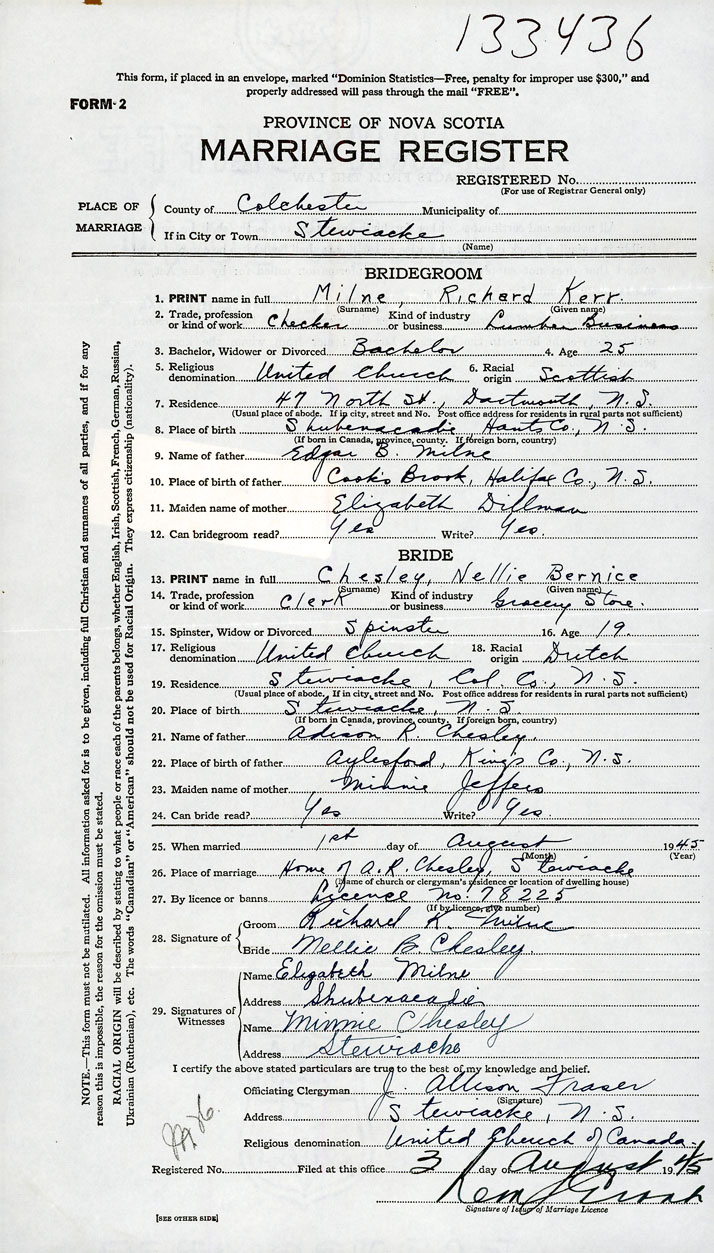 133436
This form, if placed in an envelope, marked “Dominion Statistics—Free, penalty for improper use $300,” and
properly addressed will pass through the mail “FREE”.
FORM-2
PROVINCE OF NOVA SCOTIA
MARRIAGE REGISTER
REGISTERED No.
(For use of Registrar General only)
PLACE OF MARRIAGE
County of Colchester Municipality of
If in City or Town Stewiacke
(Name)
BRIDEGROOM
1. PRINT name in full Milne, Richard Kerr.
(Surname) (Given name)
2. Trade, profession or kind of work Checker Kind of industry or business Lumber Business
3. Bachelor, Widower or Divorced Bachelor 4. Age 25
5. Religious denomination United Church 6. Racial origin Scottish
7. Residence 47 North St., Dartmouth N.S.
(Usual place of abode. If in city, street and No. Post office address for residents in rural parts not sufficient)
8. Place of birth Shubenacadie, Hants Co., N.S.
(If born in Canada, province, county. If foreign born, country)
9. Name of father Edgar B. Milne
10. Place of birth of father Cook's Brook, Halifax Co., N.S.
11. Maiden name of mother Elizabeth Dillman
12. Can bridegroom read? Yes Write? Yes.
BRIDE
13. PRINT name in full Chesley, Nellie Bernice
(Surname) (Given name)
14. Trade, profession or kind of work Clerk Kind of industry or business Grocery Store.
15. Spinster, Widow or Divorced Spinster 16. Age 19.
17. Religious denomination United Church 18. Racial origin Dutch
19. Residence Stewiacke, Col. Co., N.S.
(Usual place of abode. If in city, street and No. Post office address for residents in rural parts not sufficient)
20. Place of birth Stewiacke, N.S.
(If born in Canada, province, county. If foreign born, country)
21. Name of father Adison R. Chesley.
22. Place of birth of father Aylesford, King's Co., N.S.
23. Maiden name of mother Minnie Jeffers
24. Can bride read? Yes Write? Yes.
25. When married 1st day of August 1945
(Month) (Year)
26. Place of marriage Home of A.R. Chesley, Stewiacke
(Name of church or clergyman's residence or location of dwelling house)
27. By licence or banns Licence No. 78225
(If by licence, give number)
28. Signature of Groom Richard K. Milne
Bride Nellie B. Chesley.
29. Signatures of Witnesses
Name Elizabeth Milne
Address Shubenacadie
Name Minnie Chesley
Address Stewiacke
I certify the above stated particulars are true to the best of my knowledge and belief.
Officiating Clergyman J. Allison Fraser
(Signature)
Address Stewiacke, N.S.
Religious denomination United Church of Canada.
Registered No. Filed at this office 3 day of August 1945
Signature of Issuer of Marriage Licence
[SEE OTHER SIDE]
NOTE.—This form must not be mutilated. All information asked for is to be given, including full Christian and surnames of all parties, and if for any
reason this is impossible, the reason for the omission must be stated.
RACIAL ORIGIN will be described by stating to what people or race each of the parents belongs, whether English, Irish, Scottish, French, German, Russian,
Ukrainian (Ruthenian), etc. The words “Canadian” or “American” should not be used for Racial Origin. They express citizenship (nationality).